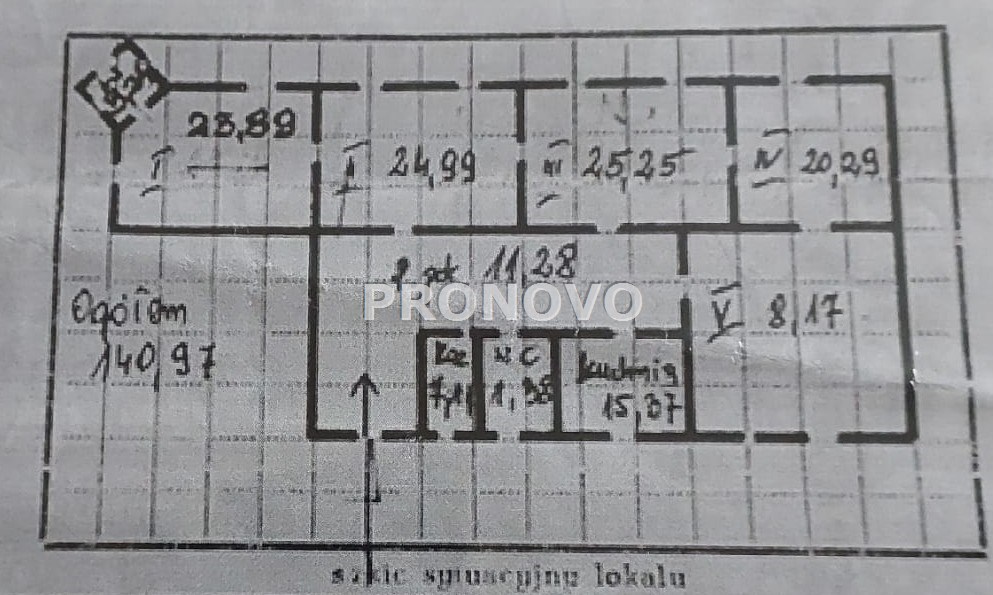 23,89
I
II 24,99
III 25,25
IV 20,29
p. pok 11,28
PRONOVO
Ogółem
140,97
V 8,17
Łaz
7,11
WC
1,38
kuchnia
15,37
szkic sytuacyjny lokalu